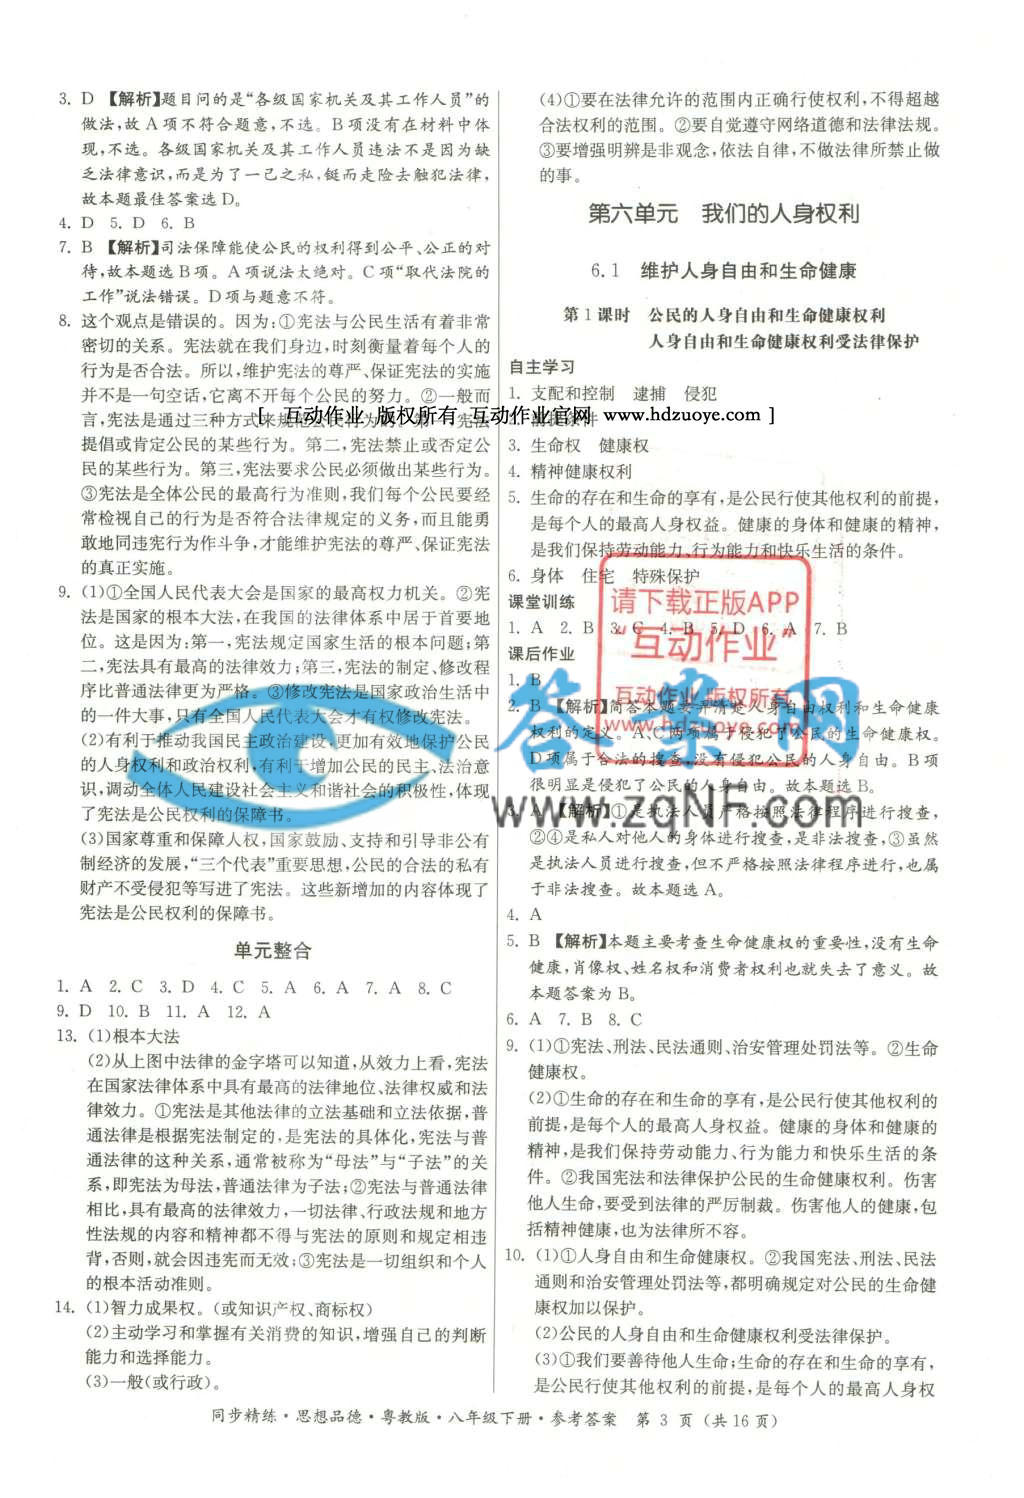 3. D 【解析】题目问的是“各级国家机关及其工作人员”的
做法,故A项不符合题意,不选。B项没有在材料中体
现,不选。各级国家机关及其工作人员违法不是因为缺
乏法律意识,而是为了一己之私,铤而走险去触犯法律,
故本题最佳答案选D。
4. D 5. D 6. B
7. B 【解析】司法保障能使公民的权利得到公平、公正的对
待,故本题选B项。A项说法太绝对。C项“取代法院的
工作”说法错误。D项与题意不符。
8. 这个观点是错误的。因为:①宪法与公民生活有着非常
密切的关系。宪法就在我们身边,时刻衡量着每个人的
行为是否合法。所以,维护宪法的尊严、保证宪法的实施
并不是一句空话,它离不开每个公民的努力。②一般而
言,宪法是通过三种方式来规范公民行为的。第一,宪法
提倡或肯定公民的某些行为。第二,宪法禁止或否定公
民的某些行为。第三,宪法要求公民必须做出某些行为。
③宪法是全体公民的最高行为准则,我们每个公民要经
常检视自己的行为是否符合法律规定的义务,而且能勇
敢地同违宪行为作斗争,才能维护宪法的尊严、保证宪法
的真正实施。
9. (1)①全国人民代表大会是国家的最高权力机关。②宪
法是国家的根本大法,在我国的法律体系中居于首要地
位。这是因为:第一,宪法规定国家生活的根本问题;第
二,宪法具有最高的法律效力;第三,宪法的制定、修改程
序比普通法律更为严格。③修改宪法是国家政治生活中
的一件大事,只有全国人民代表大会才有权修改宪法。
(2)有利于推动我国民主政治建设,更加有效地保护公民
的人身权利和政治权利,有利于增加公民的民主、法治意
识,调动全体人民建设社会主义和谐社会的积极性,体现
了宪法是公民权利的保障书。
(3)国家尊重和保障人权,国家鼓励、支持和引导非公有
制经济的发展,“三个代表”重要思想,公民的合法的私有
财产不受侵犯等写进了宪法。这些新增加的内容体现了
宪法是公民权利的保障书。
单元整合
1. A 2. C 3. D 4. C 5. A 6. A 7. A 8. C
9. D 10. B 11. A 12. A
13. (1)根本大法
(2)从上图中法律的金字塔可以知道,从效力上看,宪法
在国家法律体系中具有最高的法律地位、法律权威和法
律效力。①宪法是其他法律的立法基础和立法依据,普
通法律是根据宪法制定的,是宪法的具体化,宪法与普
通法律的这种关系,通常被称为“母法”与“子法”的关
系,即宪法为母法,普通法律为子法;②宪法与普通法律
相比,具有最高的法律效力,一切法律、行政法规和地方
性法规的内容和精神都不得与宪法的原则和规定相违
背,否则,就会因违宪而无效;③宪法是一切组织和个人
的根本活动准则。
14. (1)智力成果权。(或知识产权、商标权)
(2)主动学习和掌握有关消费的知识,增强自己的判断
能力和选择能力。
(3)一般(或行政)。
(4)①要在法律允许的范围内正确行使权利,不得超越
合法权利的范围。②要自觉遵守网络道德和法律法规。
③要增强明辨是非观念,依法自律,不做法律所禁止做
的事。
第六单元 我们的人身权利
6.1 维护人身自由和生命健康
第1课时 公民的人身自由和生命健康权利
人身自由和生命健康权利受法律保护
自主学习
1. 支配和控制 逮捕 侵犯
[ 互动作业 版权所有 互动作业官网 www.hdzuoye.com ]
2. 前提条件
3. 生命权 健康权
4. 精神健康权利
5. 生命的存在和生命的享有,是公民行使其他权利的前提,
是每个人的最高人身权益。健康的身体和健康的精神,
是我们保持劳动能力、行为能力和快乐生活的条件。
6. 身体 住宅 特殊保护
课堂训练
1. A 2. B 3. C 4. B 5. D 6. A 7. B
课后作业
1. B
2. B 【解析】简答本题要弄清楚人身自由权利和生命健康
权利的定义。A、C两项属于侵犯了公民的生命健康权。
D项属于合法的搜查,没有侵犯公民的人身自由。B项
很明显是侵犯了公民的人身自由。故本题选B。
3. A 【解析】①是执法人员严格按照法律程序进行搜查,
②④是私人对他人的身体进行搜查,是非法搜查;③虽然
是执法人员进行搜查,但不严格按照法律程序进行,也属
于非法搜查。故本题选A。
4. A
5. B 【解析】本题主要考查生命健康权的重要性,没有生命
健康,肖像权、姓名权和消费者权利也就失去了意义。故
本题答案为B。
6. A 7. B 8. C
9. (1)①宪法、刑法、民法通则、治安管理处罚法等。②生命
健康权。
(2)①生命的存在和生命的享有,是公民行使其他权利的
前提,是每个人的最高人身权益。健康的身体和健康的
精神,是我们保持劳动能力、行为能力和快乐生活的条
件。②我国宪法和法律保护公民的生命健康权。伤害
他人生命,要受到法律的严厉制裁。伤害他人的健康,包
括精神健康,也为法律所不容。
10. (1)①人身自由和生命健康权。②我国宪法、刑法、民法
通则和治安管理处罚法等,都明确规定对公民的生命健
康权加以保护。
(2)公民的人身自由和生命健康权利受法律保护。
(3)①我们要善待他人生命;生命的存在和生命的享有,
是公民行使其他权利的前提,是每个人的最高人身权
请下载正版APP
“互动作业”
互动作业 版权所有
www.hdzuoye.com
答案网
www.zqNF.com
同步精练·思想品德·粤教版·八年级下册·参考答案 第 3 页 (共16页)